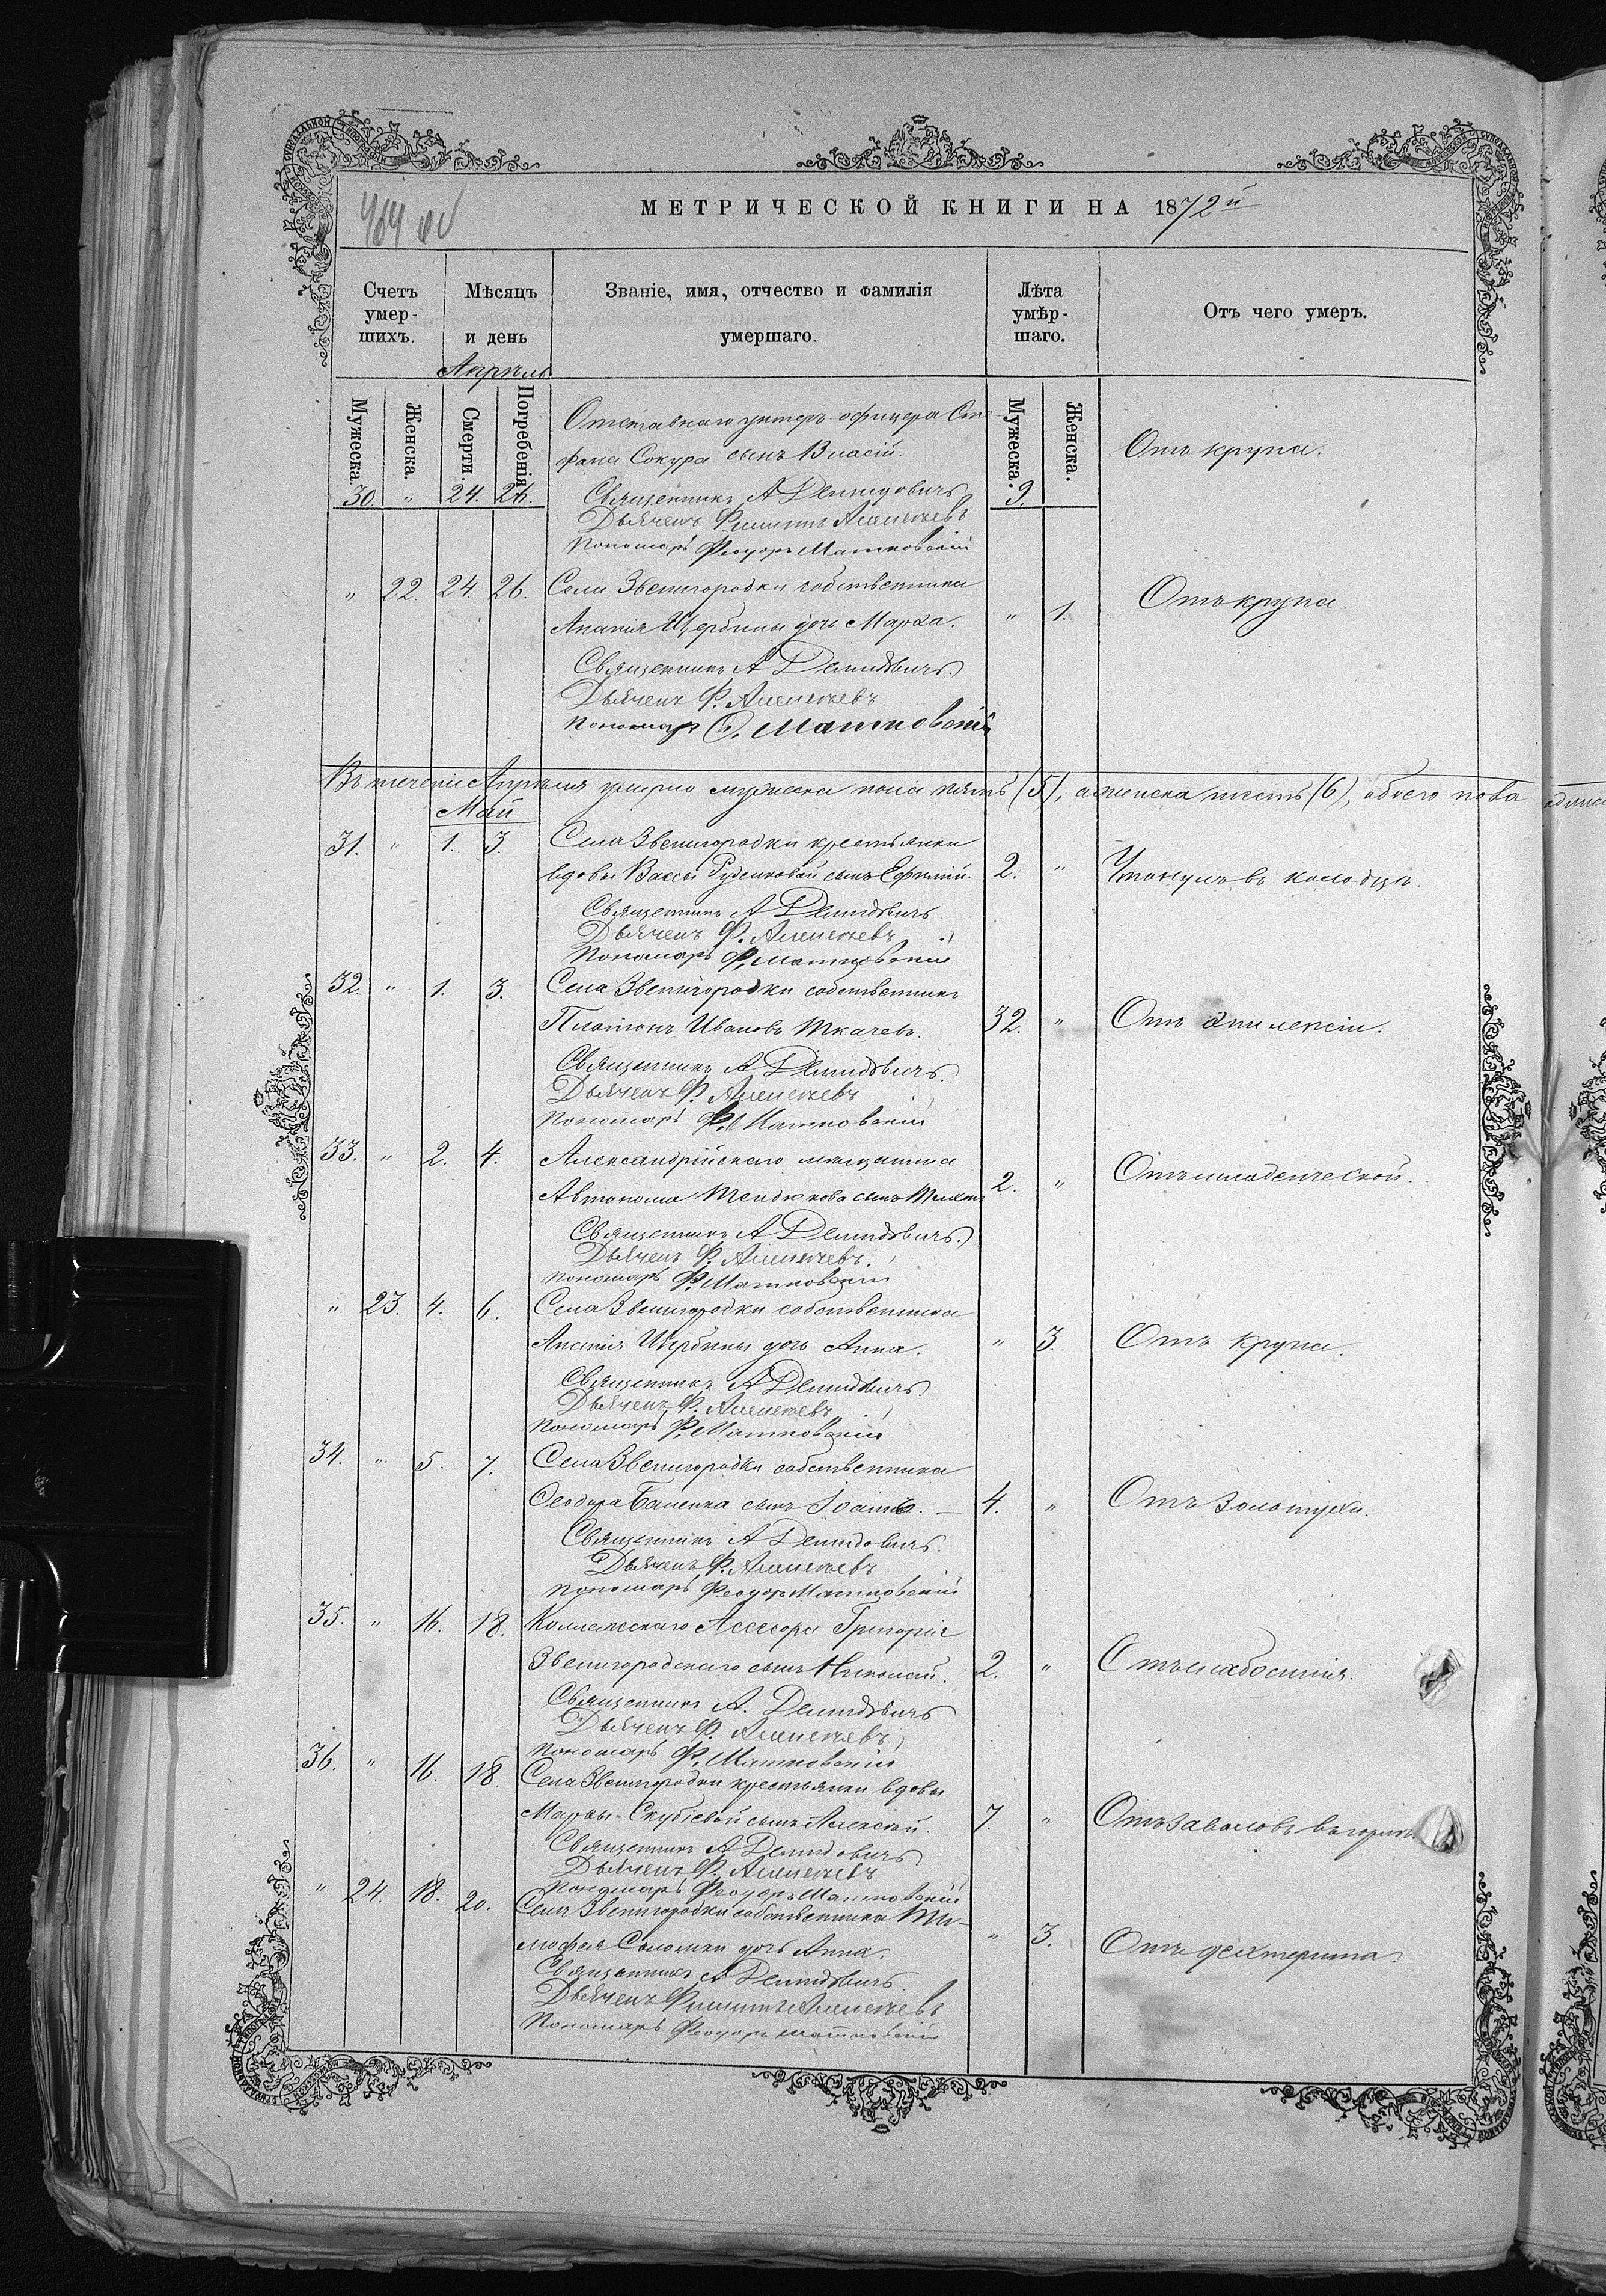 464 об
МЕТРИЧЕСКОЙ КНИГИ НА 1872й
Счетъ умер-шихъ.
Мѣсяцъ и день
Званіе, имя, отчество и фамилія умершаго.
Лѣта умѣр-шаго.
Отъ чего умеръ.
Апрѣль
Мужеска.
Женска.
Смерти.
Погребенія
Мужеска.
Женска.
Отставнаго унтеръ-офицера Сте-
фана Сокура сынъ Власій.
Отъ крупа.
30. " 24. 26.
Священникъ А Демидовичъ
9.
Дьячекъ Филиппъ Алексѣевъ
Пономарь Феодоръ Матковскій
" 22. 24. 26. Села Звенигородки собственника
Ананія Щербины дочь Марѳа. " 1. Отъ крупа.
Священникъ А Демидовичъ
Дьячекъ Ф. Алексѣевъ
Пономарь Ѳ. Матковскій
Въ теченіе Апрѣля умерло мужеска пола пять (5), а женска шесть (6), обоего пола
Май
31. " 1. 3. Села Звенигородки крестьянки
вдовы Вассы сынъ Ефимій. 2. " Утонулъ въ колодцѣ.
Священникъ А Демидовичъ
Дьячекъ Ф. Алексѣевъ
Пономарь Ф. Матковскій
32. " 1. 3. Села Звенигородки собственникъ
Платонъ Ивановъ Ткачевъ. 32. " Отъ эпилепсіи.
Священникъ А Демидовичъ.
Дьячекъ Ф. Алексѣевъ
Пономарь Ф. Матковскій
33. " 2. 4. Александрійскаго мѣщанина
Автонома сынъ 2. " Отъ младенческой.
Священникъ А Демидовичъ
Дьячекъ Ф. Алексѣевъ.
Пономарь Ф. Матковскій
" 23. 4. 6. Села Звенигородки собственника
Ананія Щербины дочь Анна. " 3. Отъ крупа.
Священникъ А Демидовичъ
Дьячекъ Ф. Алексѣевъ
Пономарь Ф. Матковскій
34. " 5. 7. Села Звенигородки собственника
Ѳеодора сынъ Іоаннъ. — 4. " Отъ золотухи.
Священникъ А Демидовичъ.
Дьячекъ Ф. Алексѣевъ
Пономарь Феодоръ Матковскій
35. " 16. 18. Коллежскаго Асессора Григорія
Звенигородскаго сынъ Николай. 2. " Отъ слабосилія.
Священникъ А. Демидовичъ
Дьячекъ Ф. Алексѣевъ
Пономарь Ф. Матковскій
36. " 16. 18. Села Звенигородки крестьянки вдовы
Марѳы сынъ Алексѣй. 7. " Отъ заваловъ въ горлѣ.
Священникъ А Демидовичъ
Дьячекъ Ф. Алексѣевъ
Пономарь Феодоръ Матковскій
" 24. 18. 20. Села Звенигородки собственника Ти-
мофея Соломки дочь Анна. " 3. Отъ дехтерита.
Священникъ А Демидовичъ
Дьячекъ Филиппъ Алексѣевъ
Пономарь Феодоръ Матковскій